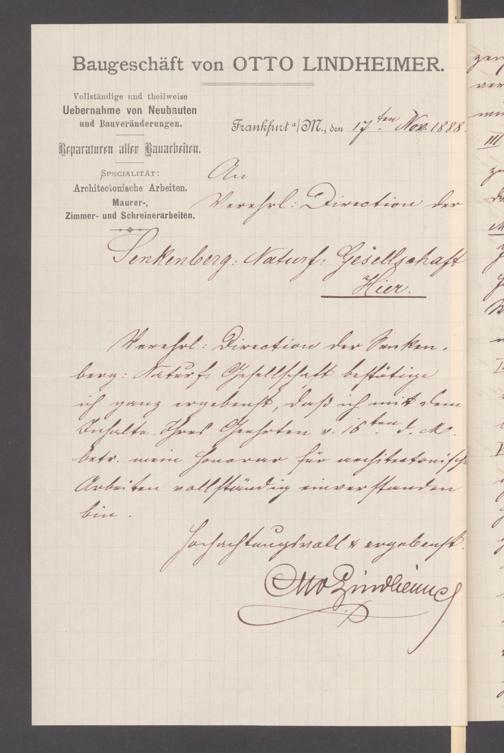 Baugeschäft von OTTO LINDHEIMER.
Vollständige und theilweise
Uebernahme von Neubauten
und Bauveränderungen.
Reparaturen aller Bauarbeiten.
SPECIALITÄT:
Architectonische Arbeiten.
Maurer-,
Zimmer- und Schreinerarbeiten.
Frankfurt a/M., den 17ten Nov. 1888.
An
Verehrl: Direction der
Senkenberg: Naturf: Gesellschaft
Hier.
Verehrl: Direction der Senken-
berg: Naturf: Gesellschaft bestätige
ich ganz ergebenst, daß ich mit dem
Inhalte Ihres Geehrten v. 16ten d. M.
betr. mein Honorar für architectonische
Arbeiten vollständig einverstanden
bin.
Hochachtungsvoll & ergebenst.
Otto Lindheimer